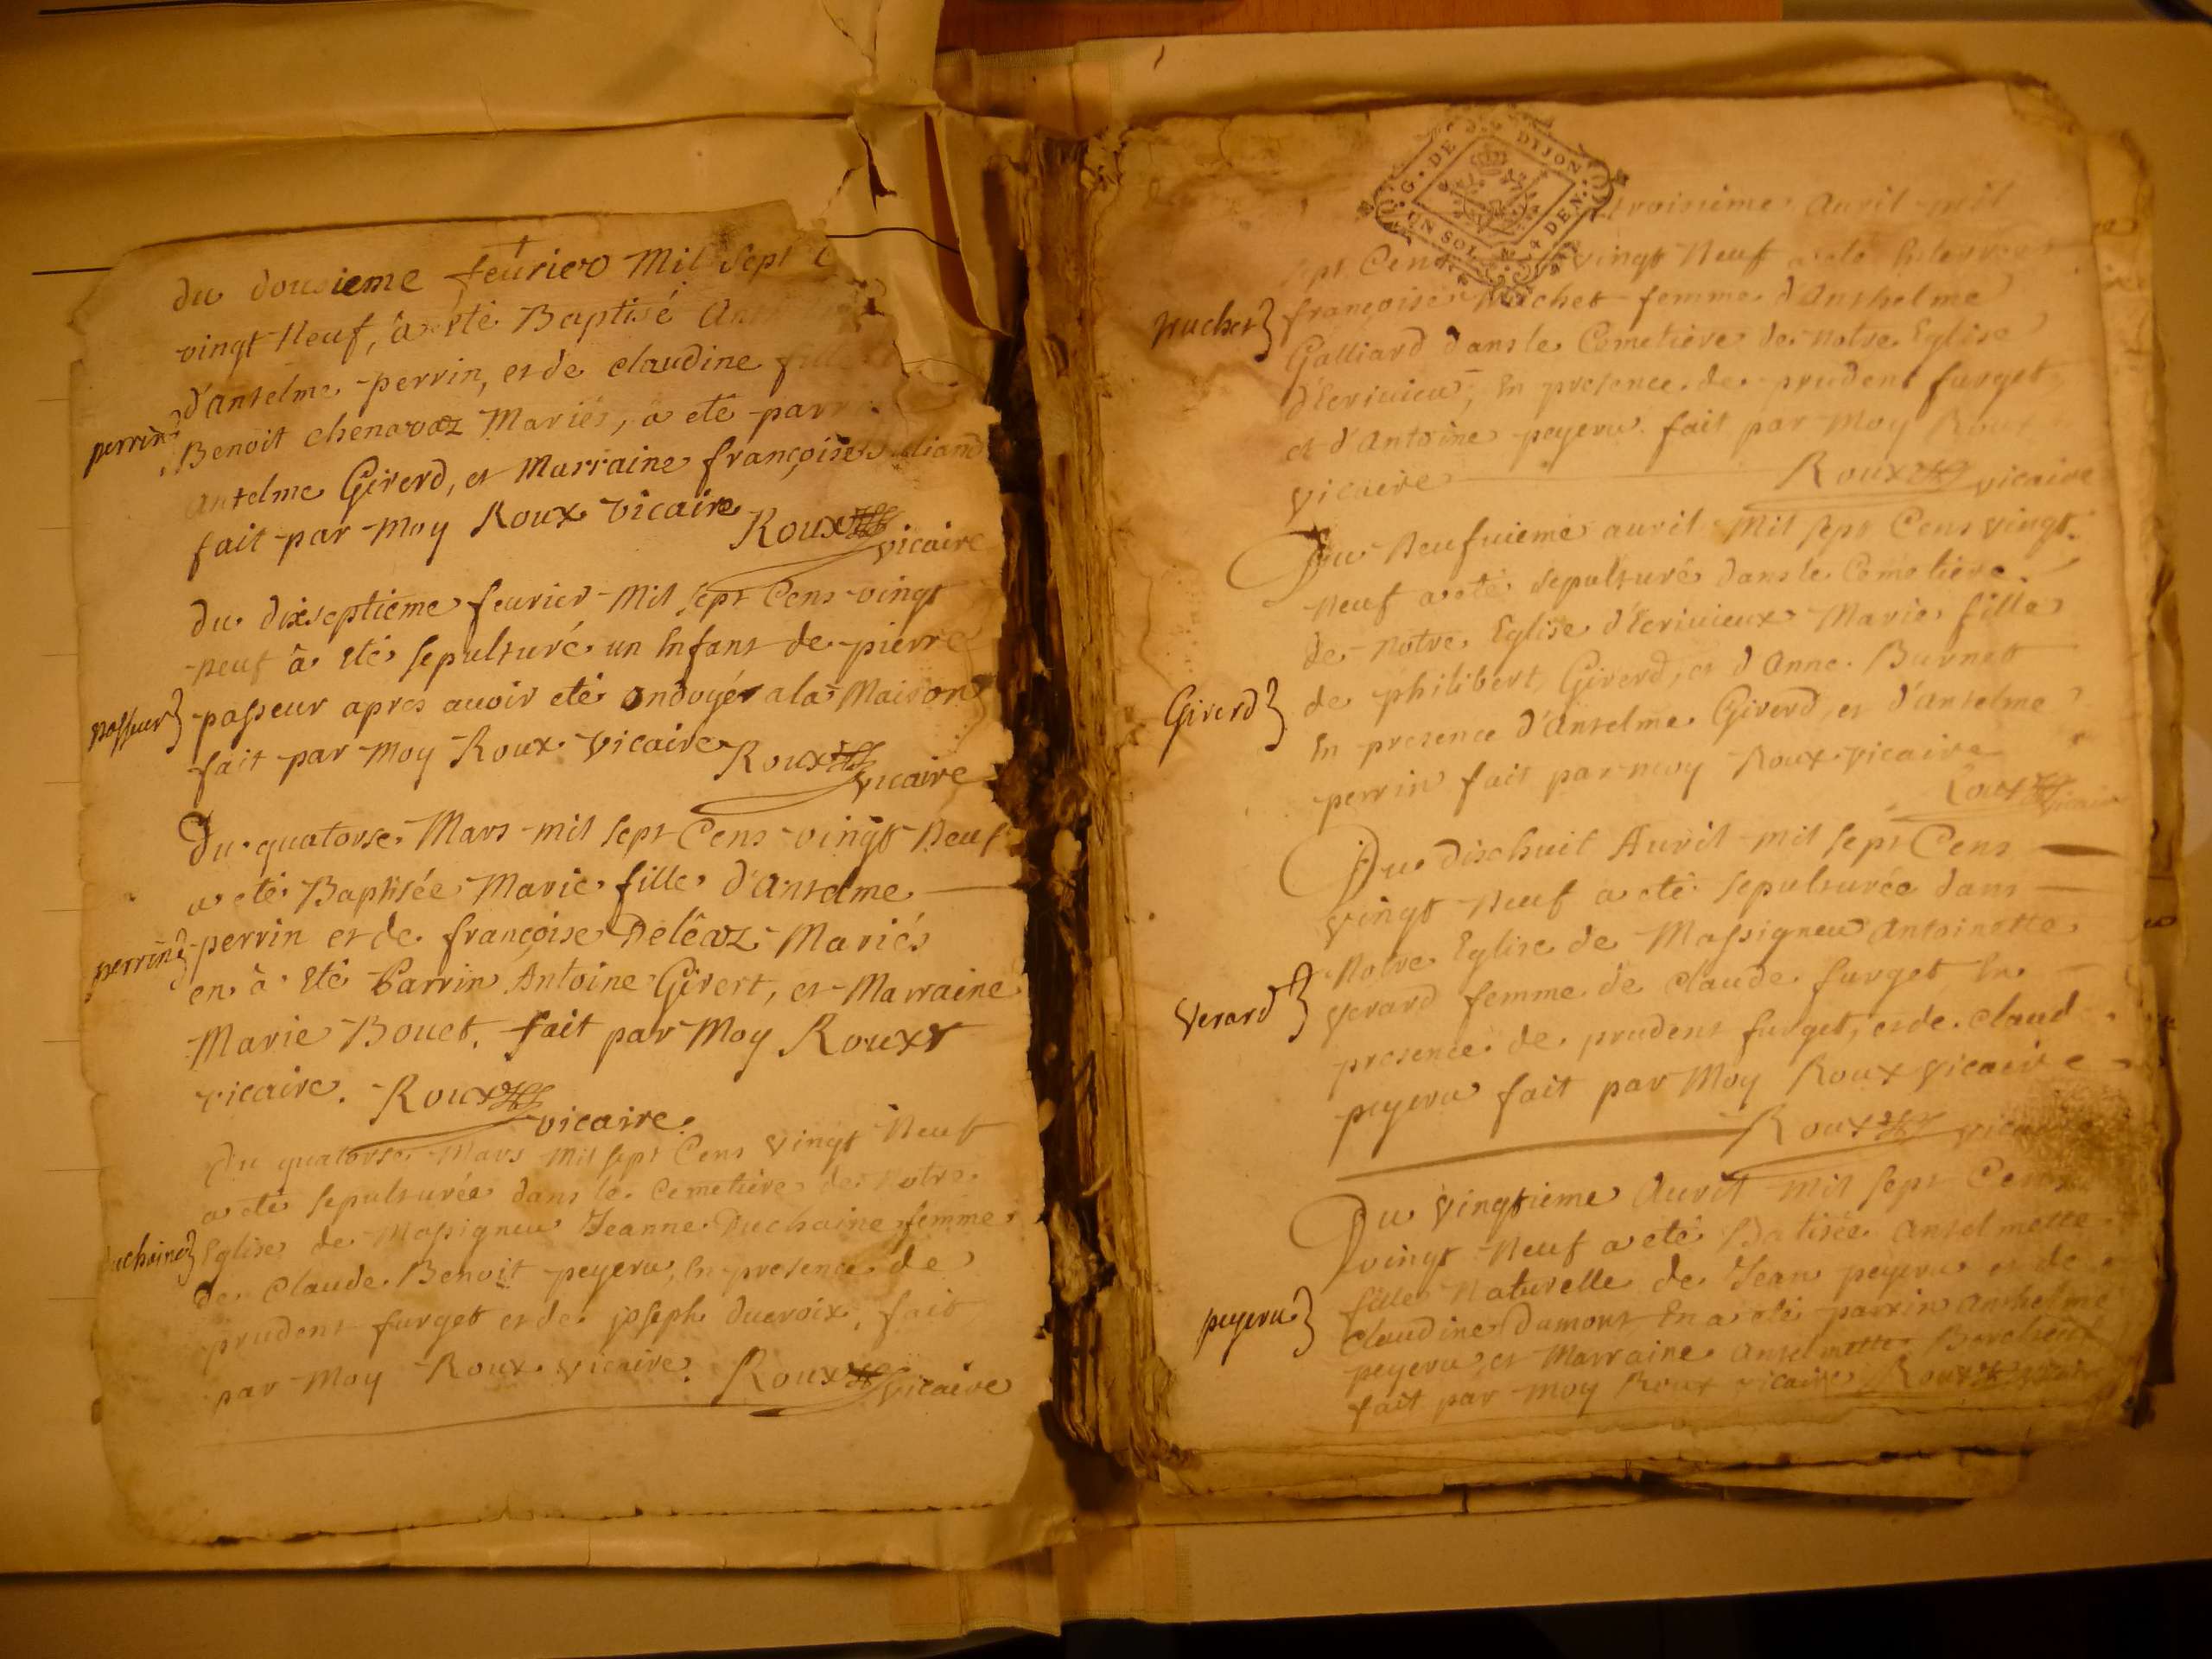 du dousieme feurier Mil Sept
vingt Neuf, à eté Baptisé
d'antelme perrin, et de claudine
perrin
Benoit chenavaz Mariés, à eté
antelme Girerd, et Marraine françoise
fait par moy Roux vicaire
Roux vicaire
du dixseptieme feurier Mil sept Cens vingt
neuf à eté sepulturé un Enfant de pierre
passeur
passeur apres auoir eté ondoyér a la Maison
fait par moy Roux vicaire
Roux vicaire
Du quatorse Mars mil sept Cens vingt Neuf
a eté Baptisée Marie fille d'antelme
perrin
perrin et de françoise Delêaz Mariés
en à eté Parrin Antoine Girert, et Marraine
Marie Bouet. fait par Moy Roux
vicaire. Roux
vicaire.
Du quatorse Mars Mil sept Cens vingt Neuf
a eté sepulturée dans le Cemetiere de Notre
Eglise de Massigneu Jeanne Duchaine femme
de Claude Benoit peyeru, En presence de
prudent furget et de joseph ducroix, fait
par Moy Roux vicaire. Roux vicaire
G. DE DIJON
UN SOL 4 DEN.
troisieme Auril mil
Cens vingt Neuf a eté Enterrée
françoise femme d'Anthelme
Galliard dans le Cemetiere de notre Eglise
d'Ecriuieu, En presence de prudent furget
et d'Antoine peyeru. fait par Moy Roux
vicaire Roux vicaire
Du Neufuieme auril Mil sept Cens vingt
Neuf a eté sepulturée dans le Cemetiere
de Notre Eglise d'Ecriuieux Marie fille
Girerd
de philibert Girerd, et d'Anne Burnet
En presence d'Antelme Girerd, et d'antelme
perrin fait par moy Roux vicaire
Roux vicaire
Du dixhuit Auril mil sept Cens
vingt Neuf a eté sepulturée dans
Notre Eglise de Massigneu Antoinette
Verard
Verard femme de Claude furget En
presence de prudent furget, et de claud
peyeru fait par Moy Roux vicaire
Roux vicaire
Du vingtieme Auril Mil sept Cens
vingt Neuf a eté Batisée Antelmette
fille Naturelle de Jean peyeru et de
peyeru
Claudine Dumont En a eté parrin Anthelme
peyeru, et Marraine Antelmette
fait par moy Roux vicaire Roux vicaire